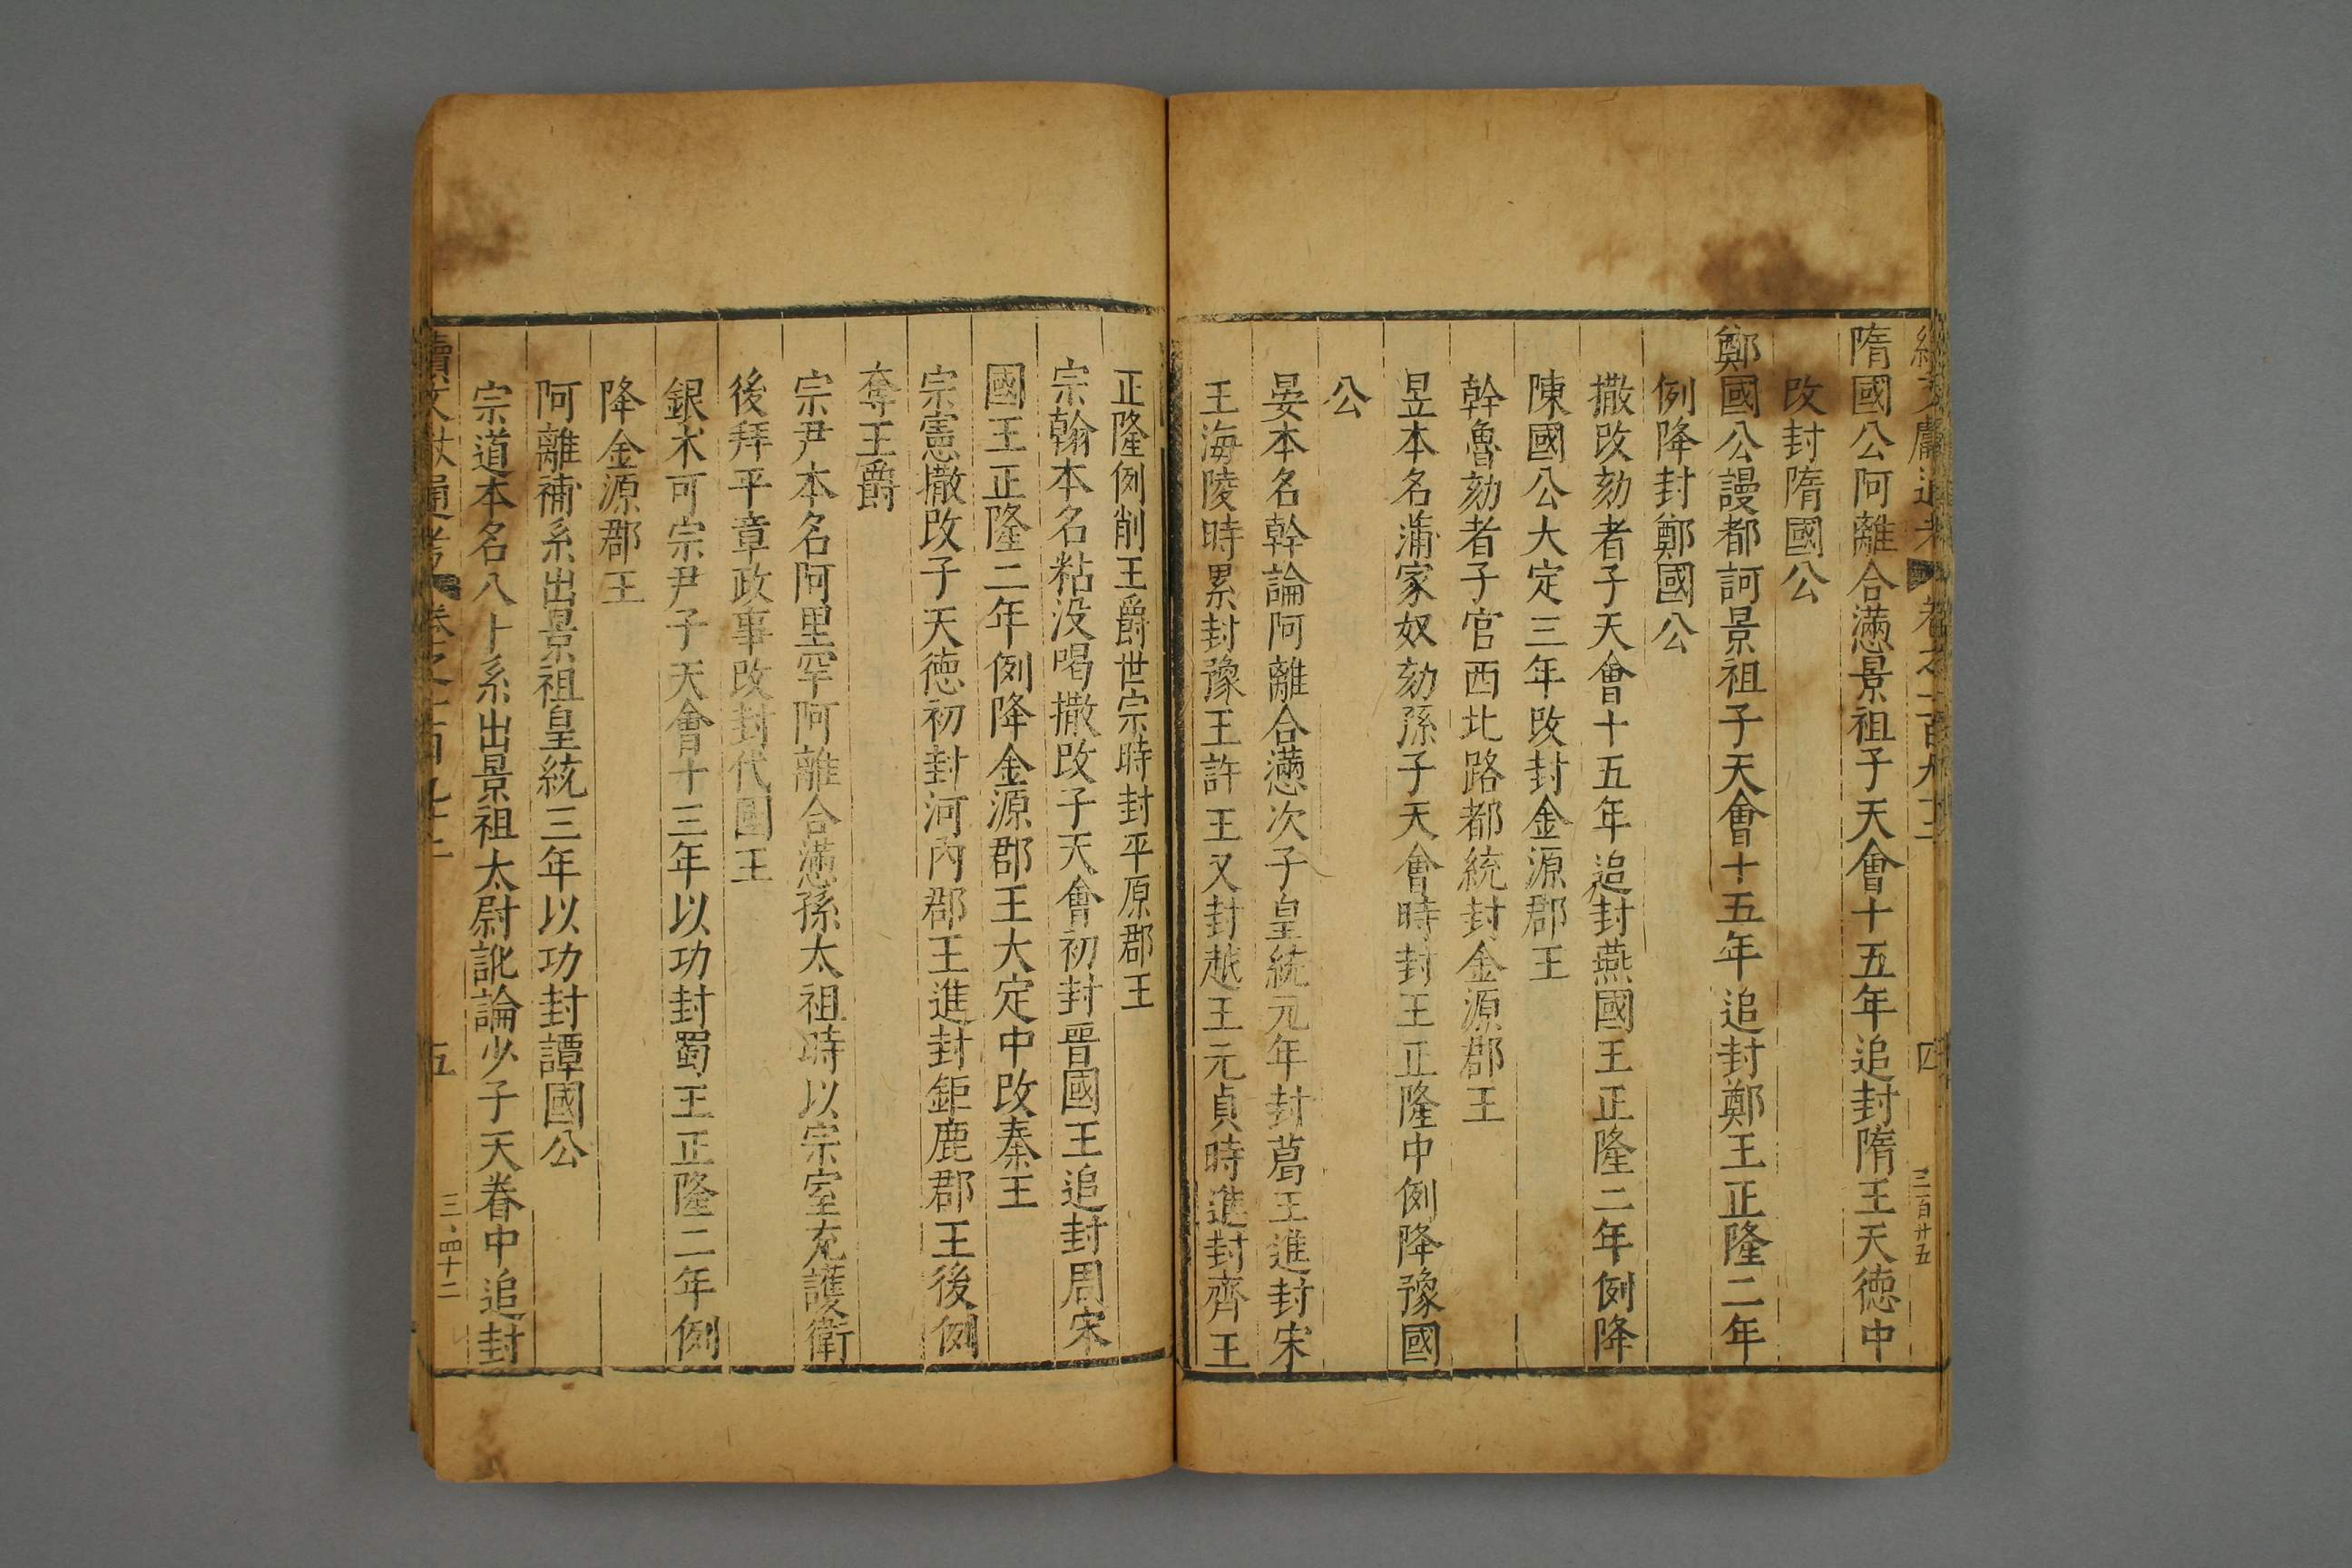 續文獻通考 卷之一百九十二 四 三百廿五
隋國公阿離合懣景祖子天會十五年追封隋王天德中
改封隋國公
鄭國公謾都訶景祖子天會十五年追封鄭王正隆二年
例降封鄭國公
撒改劾者子天會十五年追封燕國王正隆二年例降
陳國公大定三年改封金源郡王
幹魯劾者子官西北路都統封金源郡王
昱本名蒲家奴劾孫子天會時封王正隆中例降豫國
公
晏本名幹論阿離合懣次子皇統元年封葛王進封宋
王海陵時累封豫王許王又封越王元貞時進封齊王
正隆例削王爵世宗時封平原郡王
宗翰本名粘没喝撒改子天會初封晉國王追封周宋
國王正隆二年例降金源郡王大定中改秦王
宗憲撒改子天德初封河內郡王進封鉅鹿郡王後例
奪王爵
宗尹本名阿里罕阿離合懣孫太祖時以宗室充護衛
後拜平章政事改封代國王
銀术可宗尹子天會十三年以功封蜀王正隆二年例
降金源郡王
阿離補系出景祖皇統三年以功封譚國公
宗道本名八十系出景祖太尉訛論少子天眷中追封
續文獻通考 卷之一百九十二 五 四十二